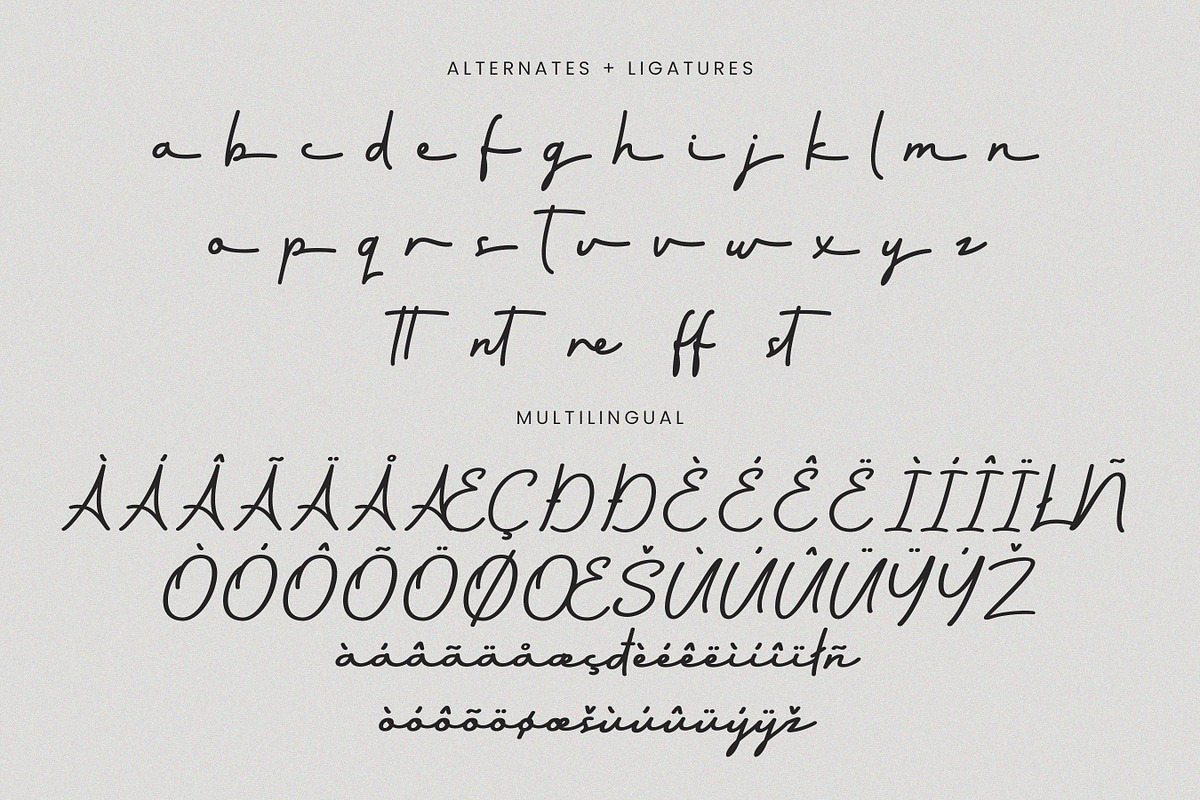 ALTERNATES + LIGATURES
a b c d e f g h i j k l m n
o p q r s t u v w x y z
tt nt re ff st
MULTILINGUAL
ÀÁÂÃÄÅÆÇÐĐÈÉÊËÌÍÎÏŁÑ
ÒÓÔÕÖØŒŠÙÚÛÜŸÝŽ
àáâãäåæçđèéêëìíîïłñ
òóôõöøœšùúûüýÿž